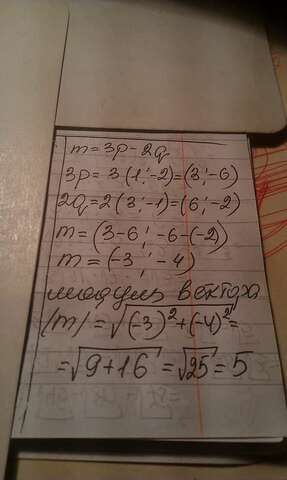 m = 3p - 2q
3p = 3(1; -2) = (3; -6)
2q = 2(3; -1) = (6; -2)
m = (3-6; -6-(-2))
m = (-3; -4)
модуль вектора
/m/ = √(-3)² + (-4)² =
= √9+16 = √25 = 5